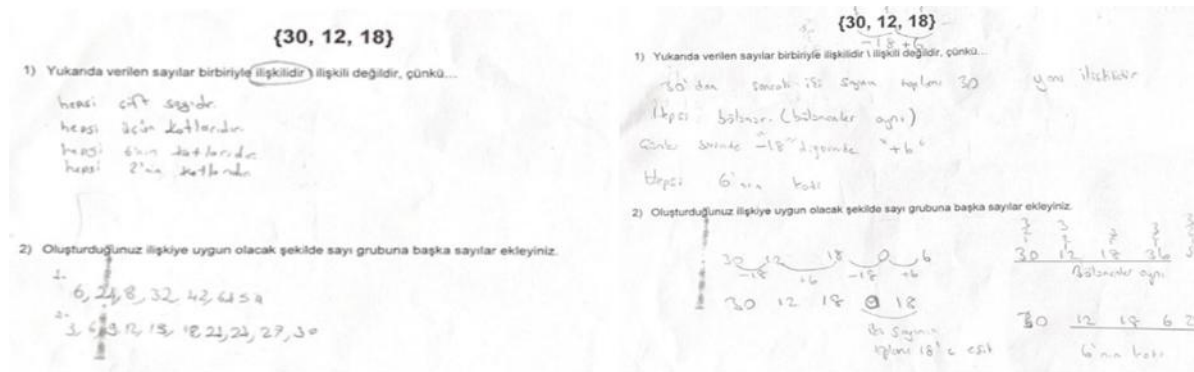 {30, 12, 18}
1) Yukarıda verilen sayılar birbiriyle ilişkilidir \ ilişkili değildir, çünkü...
hepsi çift sayıdır.
hepsi üçün katlarıdır
hepsi 6'nın katlarıdır
hepsi 2'nin katlarıdır
2) Oluşturduğunuz ilişkiye uygun olacak şekilde sayı grubuna başka sayılar ekleyiniz.
1-
6, 24, 8, 32, 42, 54
2-
3, 6, 9, 12, 15, 18, 21, 27, 30
{30, 12, 18}
-18 +6
1) Yukarıda verilen sayılar birbiriyle ilişkilidir \ ilişkili değildir, çünkü...
30'dan sonraki iki sayının toplamı 30 yani ilişkilidir
Hepsi bölünür. (bölünenler aynı)
Çünkü birinde "-18" diğerinde "+6"
Hepsi 6'nın katı
2) Oluşturduğunuz ilişkiye uygun olacak şekilde sayı grubuna başka sayılar ekleyiniz.
30 12 18 0 6
-18 +6 -18 +6
30 12 18 0 18
iki sayının
toplamı 18'e eşit
30 12 18 36
Bölünenler aynı
30 12 18 6 2
6'nın katı